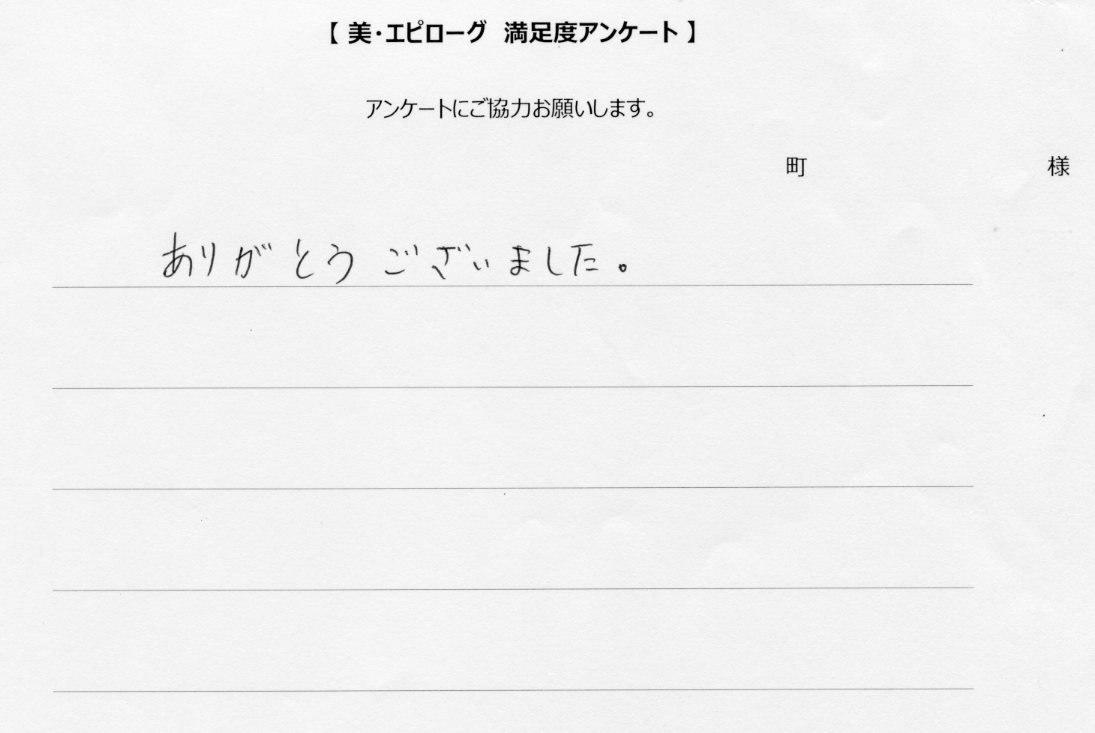 【 美・エピローグ 満足度アンケート 】
アンケートにご協力お願いします。
町 様
ありがとうございました。